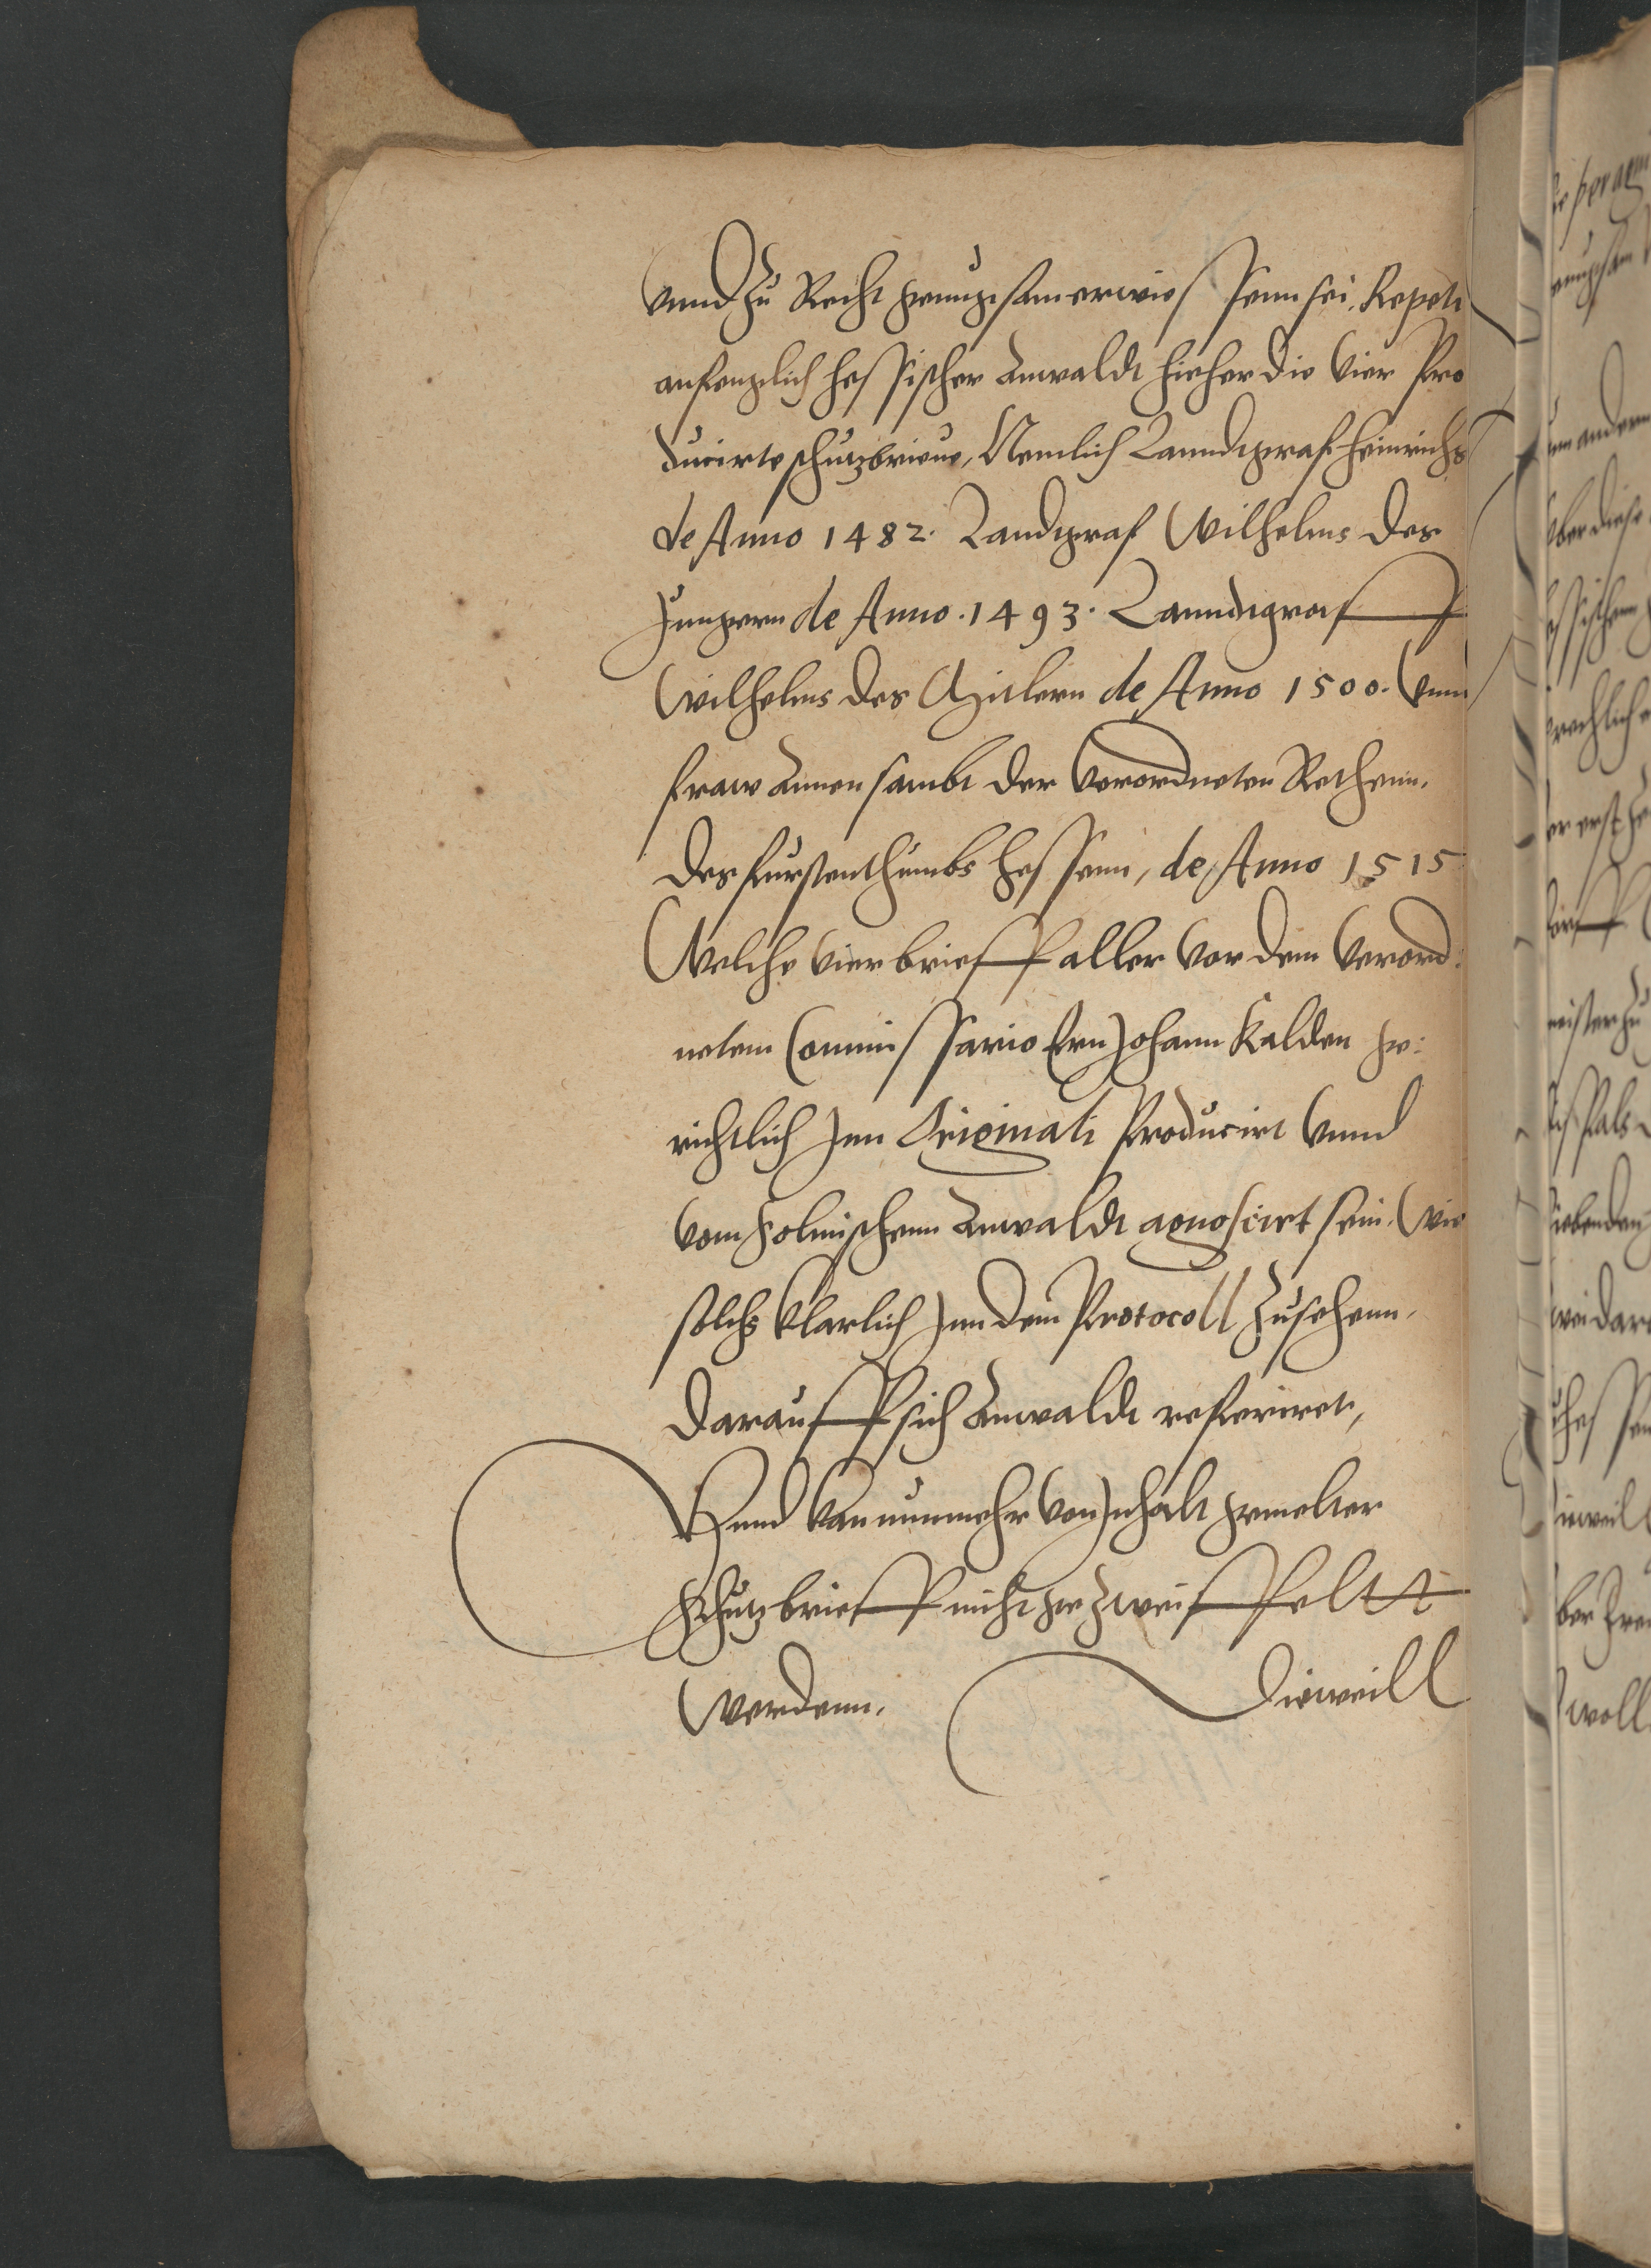 vnnd zu Recht genugsam erwiessenn sei, Repeti
anfenglich hessischer Anwaldt hieher die vier Pro
ducirte schutzbrieue, Nemlich Lanndtgraf Heinrichs
de Anno 1482. Landtgraf Wilhelms des
Jungern de Anno . 1493 . Lanndtgraff
Wilhelms des Mitlern de Anno 1500. vnnd
fraw Annen sambt der verordneten Rethenn,
des furstenthumbs hessenn, de Anno 1515
Welche vier brieff aller vor dem verord:
netem Commissario Ern Johann Kalden ge:
richtlich Inn Originali Producirt vnnd
vom Solmischenn Anwaldt agnoscirt sein, wie
solchs klarlich Inn dem Protocoll zusehenn,
darauff sich Anwaldt referiret,
Vnnd kan nunmehr von Inhalt gemelter
Schutzbrieff nicht gezweiffeltt
werdenn,
Dieweill